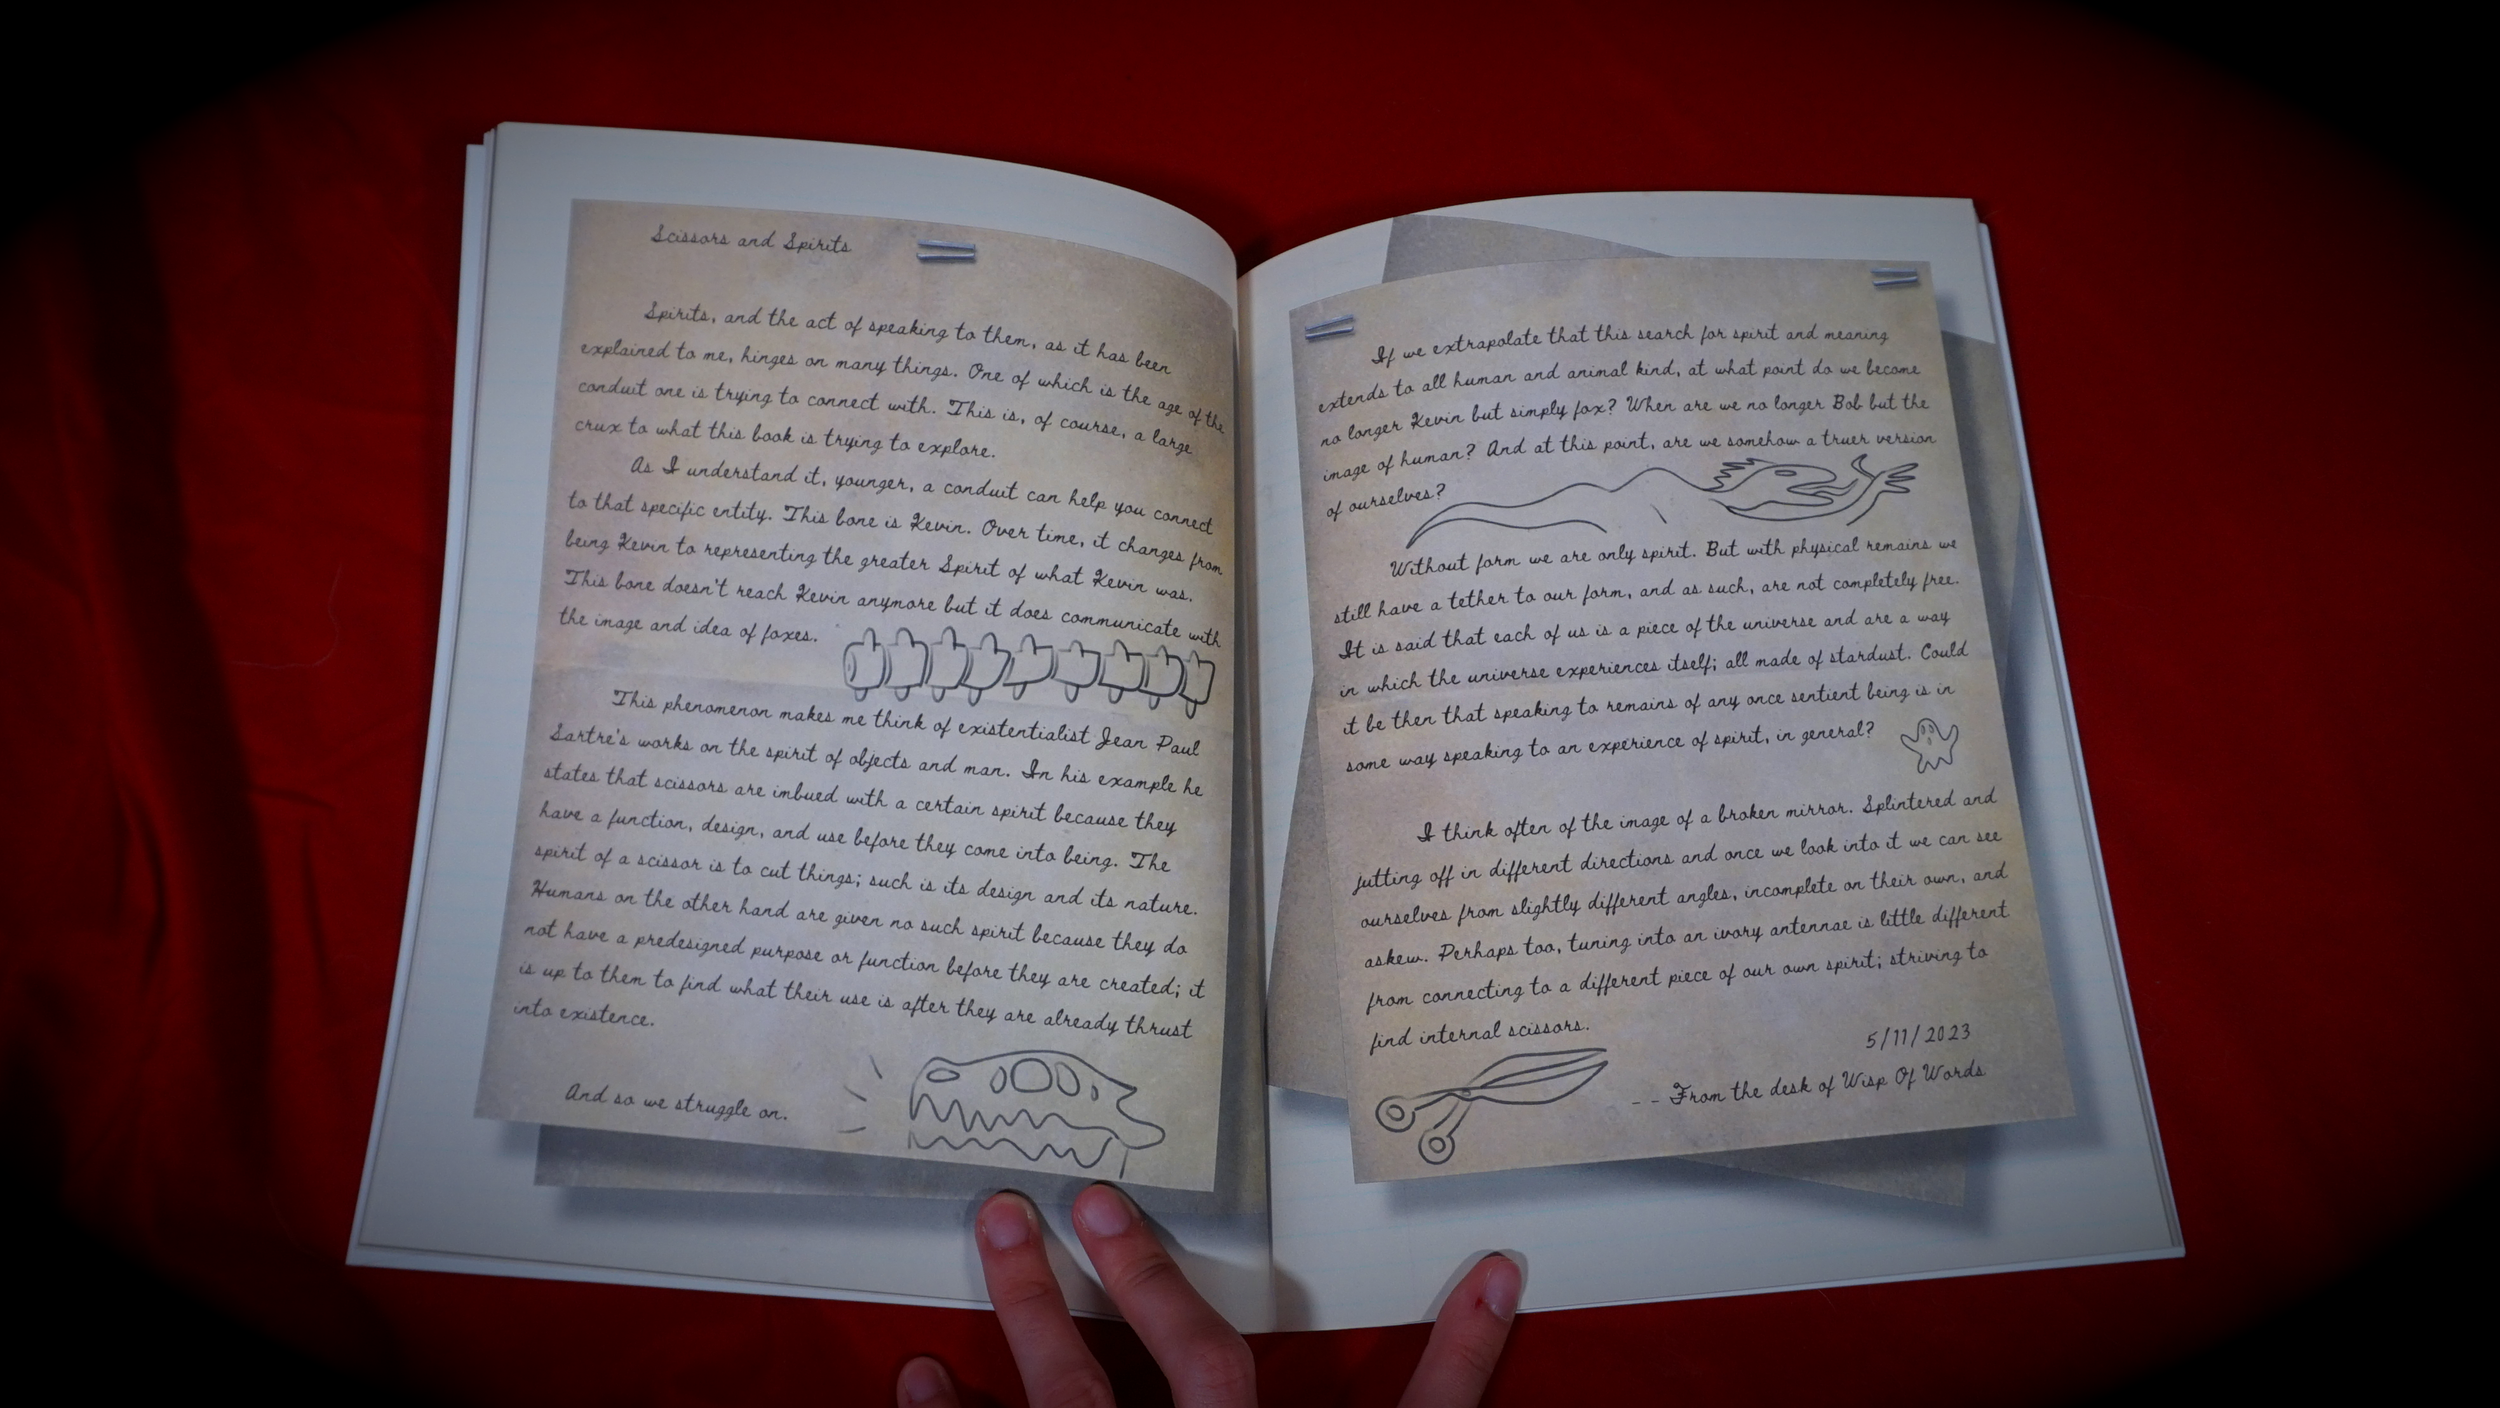 Scissors and Spirits
Spirits, and the act of speaking to them, as it has been
explained to me, hinges on many things. One of which is the age of the
conduit one is trying to connect with. This is, of course, a large
crux to what this book is trying to explore.
As I understand it, younger, a conduit can help you connect
to that specific entity. This bone is Kevin. Over time, it changes from
being Kevin to representing the greater Spirit of what Kevin was.
This bone doesn't reach Kevin anymore but it does communicate with
the image and idea of foxes.
This phenomenon makes me think of existentialist Jean Paul
Sartre's works on the spirit of objects and man. In his example he
states that scissors are imbued with a certain spirit because they
have a function, design, and use before they come into being. The
spirit of a scissor is to cut things; such is its design and its nature.
Humans on the other hand are given no such spirit because they do
not have a predesigned purpose or function before they are created; it
is up to them to find what their use is after they are already thrust
into existence.
And so we struggle on.
If we extrapolate that this search for spirit and meaning
extends to all human and animal kind, at what point do we become
no longer Kevin but simply fox? When are we no longer Bob but the
image of human? And at this point, are we somehow a truer version
of ourselves?
Without form we are only spirit. But with physical remains we
still have a tether to our form, and as such, are not completely free.
It is said that each of us is a piece of the universe and are a way
in which the universe experiences itself; all made of stardust. Could
it be then that speaking to remains of any once sentient being is in
some way speaking to an experience of spirit, in general?
I think often of the image of a broken mirror. Splintered and
jutting off in different directions and once we look into it we can see
ourselves from slightly different angles, incomplete on their own, and
askew. Perhaps too, tuning into an ivory antennae is little different
from connecting to a different piece of our own spirit; striving to
find internal scissors.
5/11/2023
-- From the desk of Wisp Of Words